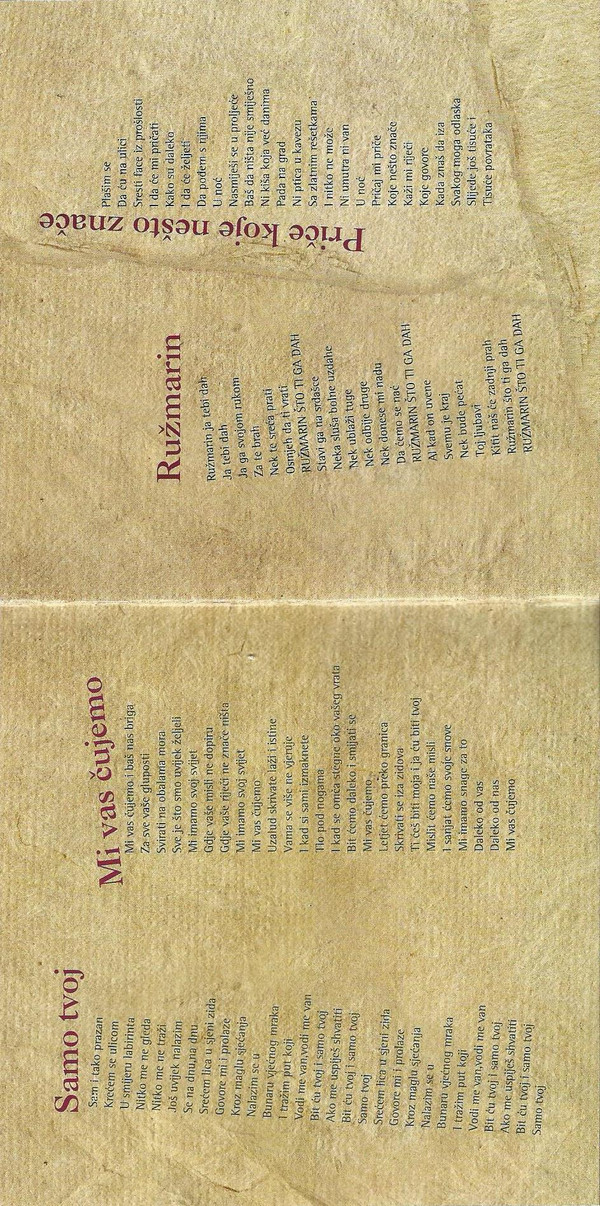 Samo tvoj
Sam i tako prazan
Krećem se ulicom
U smjeru labirinta
Nitko me ne gleda
Nitko me ne traži
Još uvijek nalazim
Se na dnu,na dnu
Srećem lica u sjeni zida
Govore mi i prolaze
Kroz maglu sjećanja
Nalazim se u
Bunaru vječnog mraka
I tražim put koji
Vodi me van,vodi me van
Bit ću tvoj i samo tvoj
Ako me uspiješ shvatiti
Bit ću tvoj i samo tvoj
Samo tvoj
Srećem lica u sjeni zida
Govore mi i prolaze
Kroz maglu sjećanja
Nalazim se u
Bunaru vječnog mraka
I tražim put koji
Vodi me van,vodi me van
Bit ću tvoj i samo tvoj
Ako me uspiješ shvatiti
Bit ću tvoj i samo tvoj
Samo tvoj
Mi vas čujemo
Mi vas čujemo i baš nas briga
Za sve vaše gluposti
Svirati na obalama mora
Sve je što smo uvijek željeli
Mi imamo svoj svijet
Gdje vaše misli ne dopiru
Gdje vaše riječi ne znače ništa
Mi imamo svoj svijet
Mi vas čujemo
Uzalud skrivate laži i istine
Vama se više ne vjeruje
I kad si sami izmaknete
Tlo pod nogama
I kad se omča stegne oko vašeg vrata
Bit ćemo daleko i smijati se
Mi vas čujemo
Letjet ćemo preko granica
Skrivati se iza zidova
Ti ćeš biti moja i ja ću biti tvoj
Mislit ćemo naše misli
I sanjat ćemo svoje snove
Mi imamo snage za to
Daleko od vas
Daleko od nas
Mi vas čujemo
Ružmarin
Ružmarin ja tebi dah
Ja tebi dah
Ja ga svojom rukom
Za te brah
Nek te sreća prati
Osmjeh da ti vrati
RUŽMARIN ŠTO TI GA DAH
Stavi ga na srdašce
Neka sluša bolne uzdahe
Nek ublaži tuge
Nek odbije druge
Nek donese mi nadu
Da ćemo se nać
RUŽMARIN ŠTO TI GA DAH
Al kad on uvene
Svemu je kraj
Nek bude pečat
Toj ljubavi
Kitit naš će zadnji prah
Ružmarin što ti ga dah
RUŽMARIN ŠTO TI GA DAH
Priče koje nešto znače
Plašim se
Da ću na ulici
Sresti face iz prošlosti
I da će mi pričati
Kako su daleko
I da će željeti
Da pođem s njima
U noć
Nasmiješi se u proljeće
Baš da ništa nije smiješno
Ni kiša koja već danima
Pada na grad
Ni ptica u kavezu
Sa zlatnim rešetkama
I nitko ne može
Ni unutra ni van
U noć
Pričaj mi priče
Koje nešto znače
Kaži mi riječi
Koje govore
Kada znaš da iza
Svakog moga odlaska
Slijede još tisuće i
Tisuće povrataka